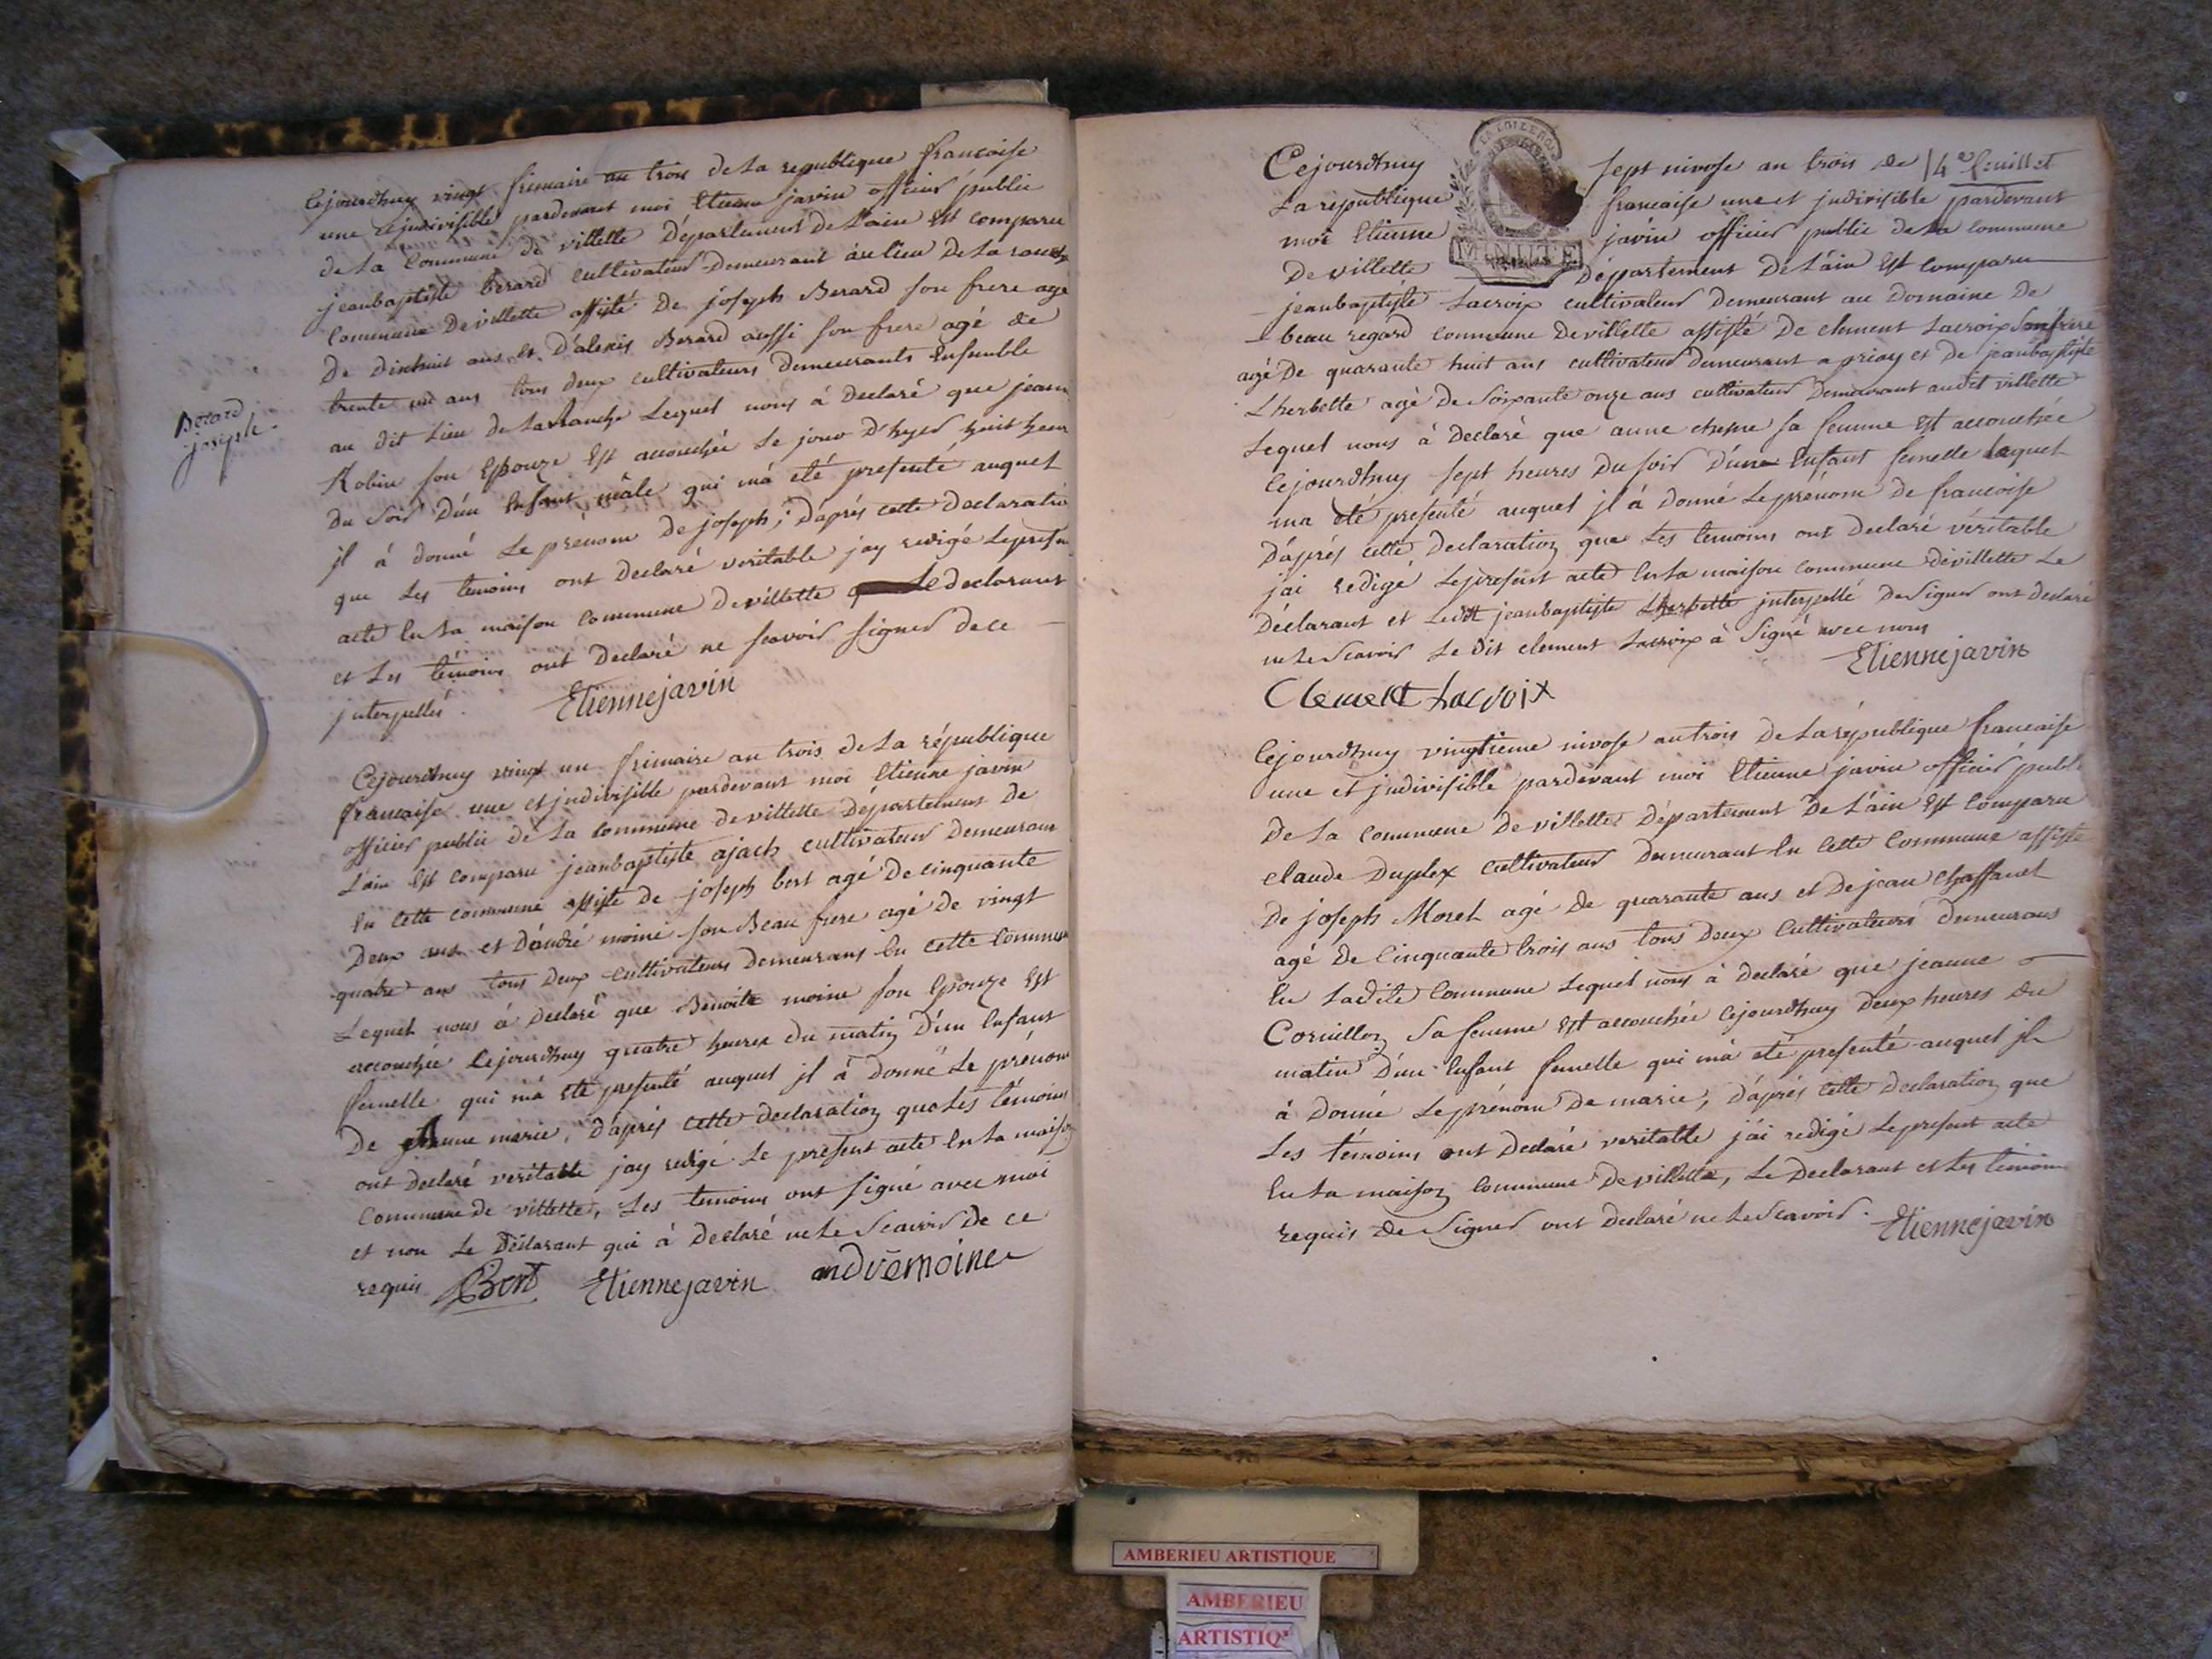 Cejourdhuy vingt frimaire an trois de la republique francoise
une et jndivisible pardevant moi Etienne javin officier public
de la Commune de villette Département de L'ain Est comparu
jeanbaptiste berard cultivateur Demeurant au lieu de la
Commune de villette assisté de joseph Berard son frere agé
De dixhuit ans et D'alexis Berard aussi son frere agé de
trente ans tous deux cultivateurs demeurants Ensemble
au dit Lieu de Lequel nous à declaré que jeanne
Robin son Epouze Est accouchée le jour D'hyer huit heures
Du Soir D'un Enfant mâle qui m'à été presenté auquel
jl à donné le prénom de joseph ; D'aprés cette declaration
que les temoins ont Declaré veritable jay redigé le present
acte En la maison commune de villette Le declarant
et les témoins ont declaré ne scavoir signer de ce
jnterpellés. Etiennejavin
Berard
joseph.
Cejourdhuy vingt un frimaire an trois de la république
francaise une et jndivisible pardevant moi Etienne javin
officier public de la commune de villette Département de
L'ain Est comparu jeanbaptiste ajach cultivateur demeurant
En cette commune assisté de joseph bert agé De cinquante
Deux ans et D'andré moine son Beau frere agé de vingt
quatre ans tous deux cultivateurs demeurans En cette Commune
Lequel nous à declaré que Benoite moine son Epouze Est
accouchée Cejourdhuy quatre heures du matin D'un Enfant
femelle qui m'à été presenté auquel jl à donné le prénom
De marie, D'aprés cette declaration que les témoins
ont declaré veritable jay redigé le présent acte En la maison
Commune de villette, Les temoins ont signé avec moi
et non le Déclarant qui à Declaré ne le Scavoir De ce
requis Bert Etiennejavin andremoine
Cejourdhuy sept nivose an trois de 14e feuillet
La république francaise une et jndivisible pardevant
moi Etienne javin officier public de la commune
De villette Département De L'ain Est comparu
MINUTE
jeanbaptiste Lacroix cultivateur Demeurant au Domaine de
beau regard commune de villette assisté De clement Lacroix Son frere
agé De quarante huit ans cultivateur Demeurant a priay et De jeanbaptiste
Lherbette agé de Soixante onze ans cultivateur Demeurant audit villette
Lequel nous à declaré que anne sa femme Est accouchée
Cejourdhuy sept heures Du soir D'une Enfant femelle Laquel
ma été presenté auquel jl à donné Le prénom De francoise
D'aprés cette declaration que les temoins ont declaré véritable
jai redigé Le present acte En la maison commune de villette Le
Déclarant et Ledit jeanbaptiste Lherbette jnterpellé De Signer ont declaré
ne le Scavoir le dit clement Lacroix à Signé avec nous
Etiennejavin
Clement Lacroix
Cejourdhuy vingtieme nivose an trois De la république francaise
une et jndivisible pardevant moi Etienne javin officier publ
De la commune De villette Département De L'ain Est Comparu
claude Duplex cultivateur Demeurant En Cette Commune assisté
De joseph Morel agé de quarante ans et De jean Chaffanel
agé De Cinquante trois ans tous Deux Cultivateurs demeurans
En Ladite Commune Lequel nous à declaré que jeanne
Cornillon Sa femme Est accouchée Cejourdhuy Deux heures du
matin D'un Enfant femelle qui m'à été presenté auquel jl
à Donné Le prénom De marie, D'aprés Cette declaration que
Les témoins ont Declaré veritable j'ai redigé Le present acte
En la maison commune De villette, Le Declarant et les temoins
requis de Signer ont declaré ne le Scavoir. Etiennejavin
AMBERIEU ARTISTIQUE
AMBERIEU
ARTISTIQ